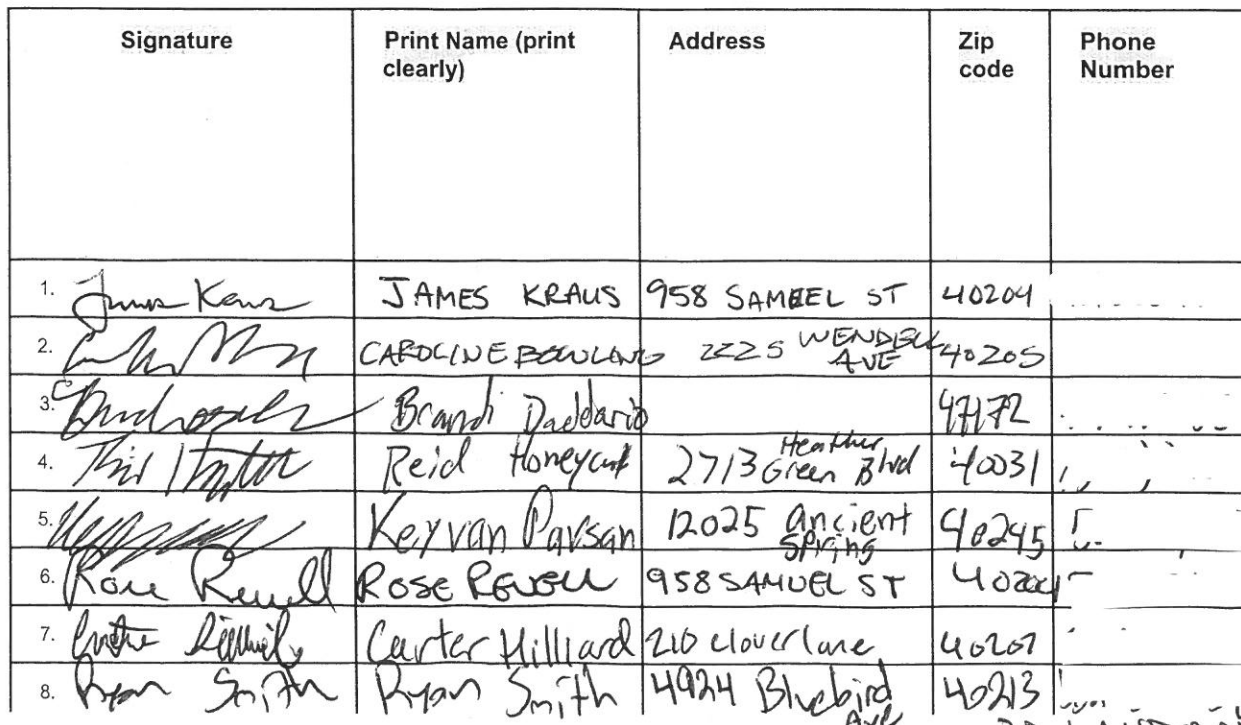 Signature Print Name (print clearly) Address Zip code Phone Number
1. JAMES KRAUS 958 SAMUEL ST 40204
2. CAROLINE BOWLING 2225 WENDELL AVE 40205
3. Brandi Daddario 47172
4. Reid Honeycutt 2713 Heather Green Blvd 40031
5. Keyvan Parsan 12025 Ancient Spring 40245
6. Rose Revell ROSE REVELL 958 SAMUEL ST 40204
7. Carter Hilliard 210 Cloverlane 40207
8. Ryan Smith Ryan Smith 4924 Bluebird Ave 40213